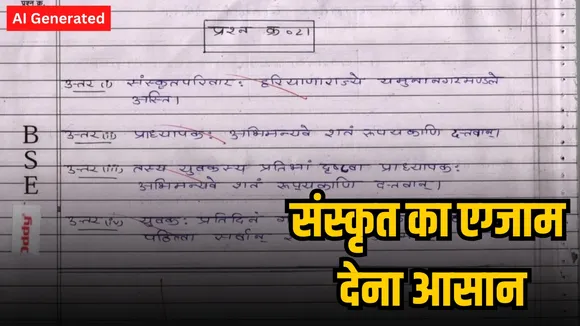 प्रश्न क्र.
AI Generated
प्रश्न क्र०21
उत्तर (i) संस्कृतपरिवारः हरियाणाराज्ये यमुनानगरमण्डले
अस्ति।
उत्तर (ii) प्राध्यापकः अभिमन्यवे शतं रूप्यकाणि दत्तवान्।
उत्तर (iii) तस्य युवकस्य प्रतिभां दृष्ट्वा प्राध्यापकः
अभिमन्यवे शतं रूप्यकाणि दत्तवान्।
उत्तर (iv) युवकः प्रतिदिनं
पठित्वा
BSE
oddy
संस्कृत का एग्जाम
देना आसान